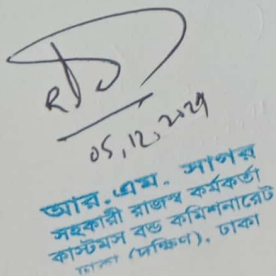 05.12.2024
আর.এম. সাগর
সহকারী রাজস্ব কর্মকর্তা
কাস্টমস বন্ড কমিশনারেট
ঢাকা (দক্ষিণ), ঢাকা